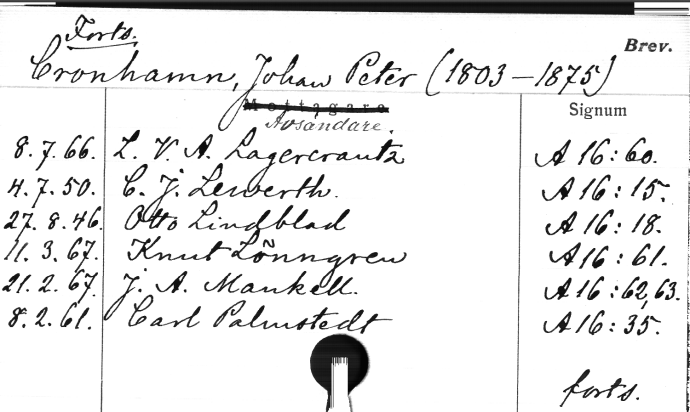 Forts.
Brev.
Cronhamn, Johan Peter (1803-1875)
Mottagare
Signum
Avsändare.
8.7.66. L. V. A. Lagercrantz A 16:60.
4.7.50. C. J. Lewerth. A 16:15.
27.8.46. Otto Lindblad A 16:18.
11.3.67. Knut Lönngren A 16:61.
21.2.67. J. A. Mankell. A 16:62,63.
8.2.61. Carl Palmstedt A 16:35.
forts.